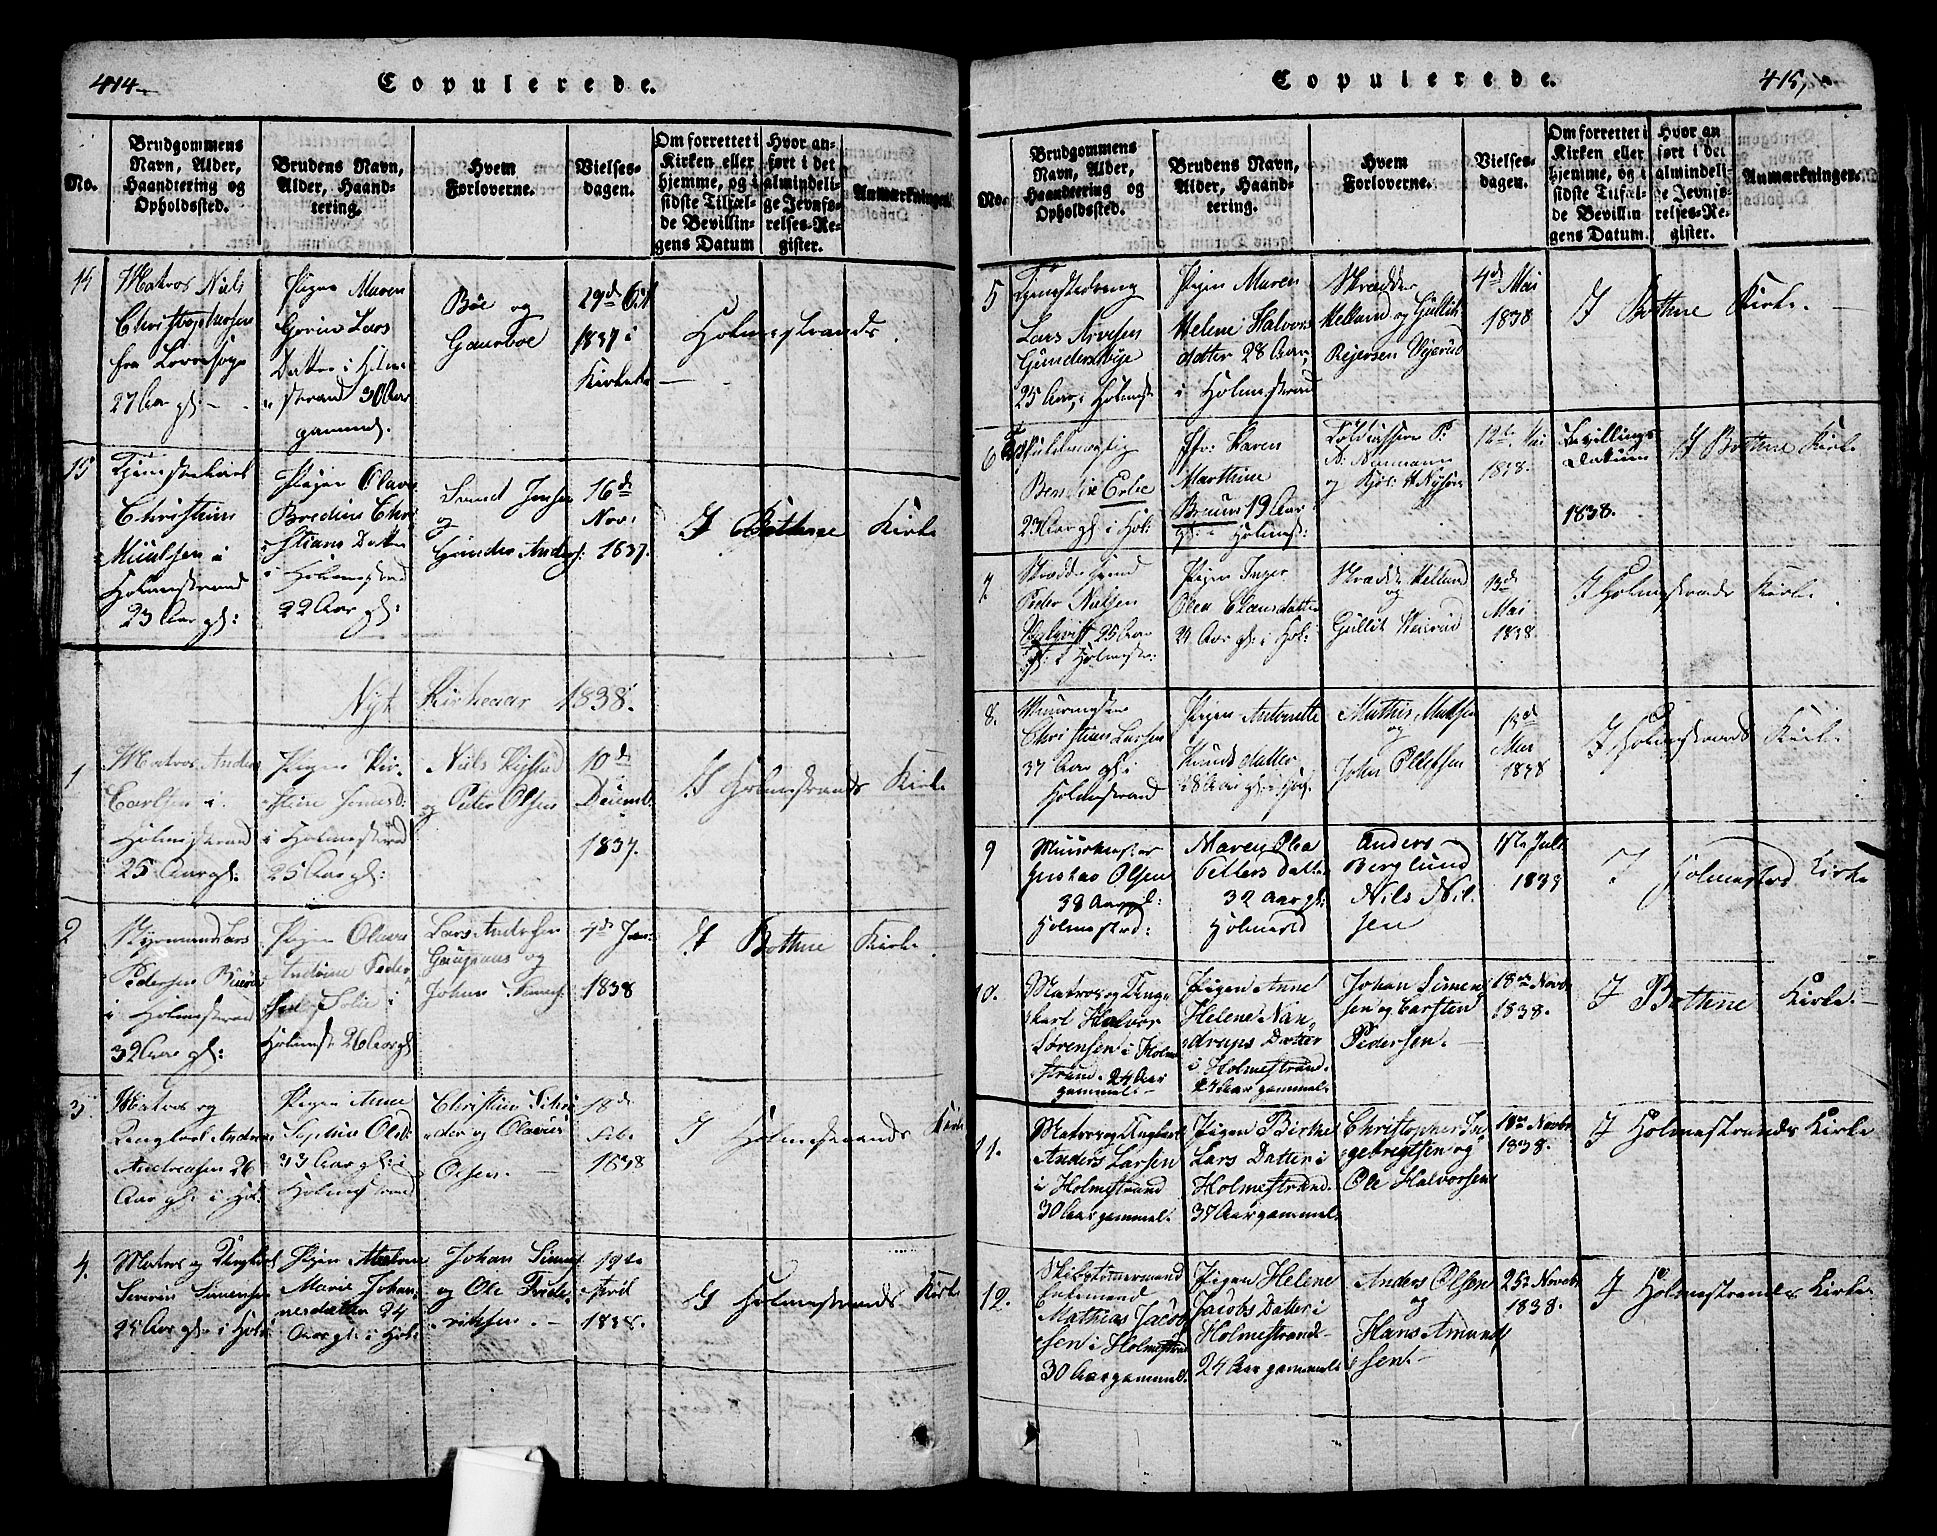 414
Copulerede.
No.
Brudgommens
Navn, Alder,
Haandtering og
Opholdssted.
Brudens Navn,
Alder, Haand-
tering.
Hvem
Forloverne.
Vielses-
dagen.
Om forrettet i
Kirken eller
hjemme, og i
sidste Tilfæl-
de Bevillin-
gens Datum
Hvor an-
ført i det
almindeli-
ge Jevnfø-
relses-Re-
gister.
Anmærkninger.
14
Matros Niels
Christophersen
fra
27 Aar gl:
Pigen Maren
Lars
Datter i Holme
strand 30 Aar
gammel.
Bøe og
29de
1837 i
Kirken
Holmestrands
15
Christian
i
Holmestrand
23 Aar gl:
Pigen Olava
Chri
stians Datter
i Holmestrand
22 Aar gl:
Jensen
og
Gunder Anders:
16de
Nov:
1837.
I Bothne Kirke
Nyt Kirkeaar 1838.
1
Matros Anders
Carlsen i
Holmestrand
25 Aar gl:
Pigen
i Holmestrand
25 Aar gl:
Niels
og Peter Olsen
10de
Decemb.
1837.
I Holmestrands Kirke
2
Lars
Pedersen
i Holmestrand
32 Aar gl:
Pigen Olava
Andrine Peder
i
Holmest 26 Aar gl
Lars Andersen
og
Johan
4de Jan:
1838
I Bothne Kirke
3.
Matros og
Ungkarl Anders
Andreasen 26
Aar gl: i Hol:
Pigen Anne
Sophie Olsd:
33 Aar gl: i
Holmestrand
Christian
og Olavus
Olsen.
18de
Feb.
1838
I Holmestrands Kirke
4.
Matros og Ungkarl
Severin Simensen
25 Aar gl: i Holm
Pigen
Marie Johan
nesdatter 24
Aar gl: i Hol:
Johan Simens
og Ole Frede
riksen.
19de
April
1838.
I Holmestrands Kirke
415,
Copulerede.
No.
Brudgommens
Navn, Alder,
Haandtering og
Opholdssted.
Brudens Navn,
Alder, Haand-
tering.
Hvem
Forloverne.
Vielses-
dagen.
Om forrettet i
Kirken eller
hjemme, og i
sidste Tilfæl-
de Bevillin
gens Datum.
Hvor an
ført i det
almindeli-
ge Jevnfø-
relses-Re-
gister.
Anmærkninger.
5
Tjenestedreng
Lars
25 Aar, i Holmest:
Pigen Maren
Helene Halvors
datter 28 Aar,
i Holmestrand
Skrædder
Helland og Gullik
Reiersen
4de Mai
1838
I Bothne Kirke
6
Fuldmægtig
Bendix
23 Aar gl: i Hol:
Karen
Marthine
Bruun 19 Aar
gl: i Holmst:
og
12te Mai
1838.
Bevillings
Datum
1838.
I Bothne Kirke
7.
Peder Nielsen
25 Aar
gl: i Holmestr:
Pigen Inger
Olea Clausdatter
24 Aar gl: i Hol:
Skrædder Helland
og
Gullik
13de
Mai
1838.
I Holmestrands Kirke.
8.
Muurmester
Christian Larsen
37 Aar gl: i
Holmestrand
Pigen Antonette
Knudsdatter
28 Aar gl: i Hol.
Mathis
og
John Ellefsen
13de
Mai
1838
I Holmestrands Kirke
9
Muurmester
Gustav Olsen
38 Aar gl:
Holmestrd:
Maren Olea
Petters datt
32 Aar gl:
Holmestd
Anders
Berglund
Nils Nil
sen
15te Juli
1838
I Holmestrd Kirke
10.
Matros og Ung
karl Halvor
Sørensen i Holme
strand. 24 Aar
gammel.
Pigen Anne
Helene Nan
drups Datter
i Holmestrand.
24 Aar gammel.
Johan Simen
sen og Carsten
Pedersen.
18de Novbr
1838.
I Bothne Kirke.
11.
Matros og Ungkarl
Anders Larsen
i Holmestrand
30 Aar gammel.
Pigen Birthe
Lars Datter i
Holmestrand.
37 Aar gammel.
Christopher In
gebrigtsen og
Ole Halvorsen
18de Novbr
1838.
I Holmestrands Kirke
12.
Skibstømmermand
Enkemand
Mathias Jacob
sen i Holmestrand
30 Aar gammel.
Pigen Helene
Jacobs Datter i
Holmestrand
24 Aar gammel.
Anders Olsen
og
Hans Amund
sen.
25de Novbr
1838.
I Holmestrands Kirke